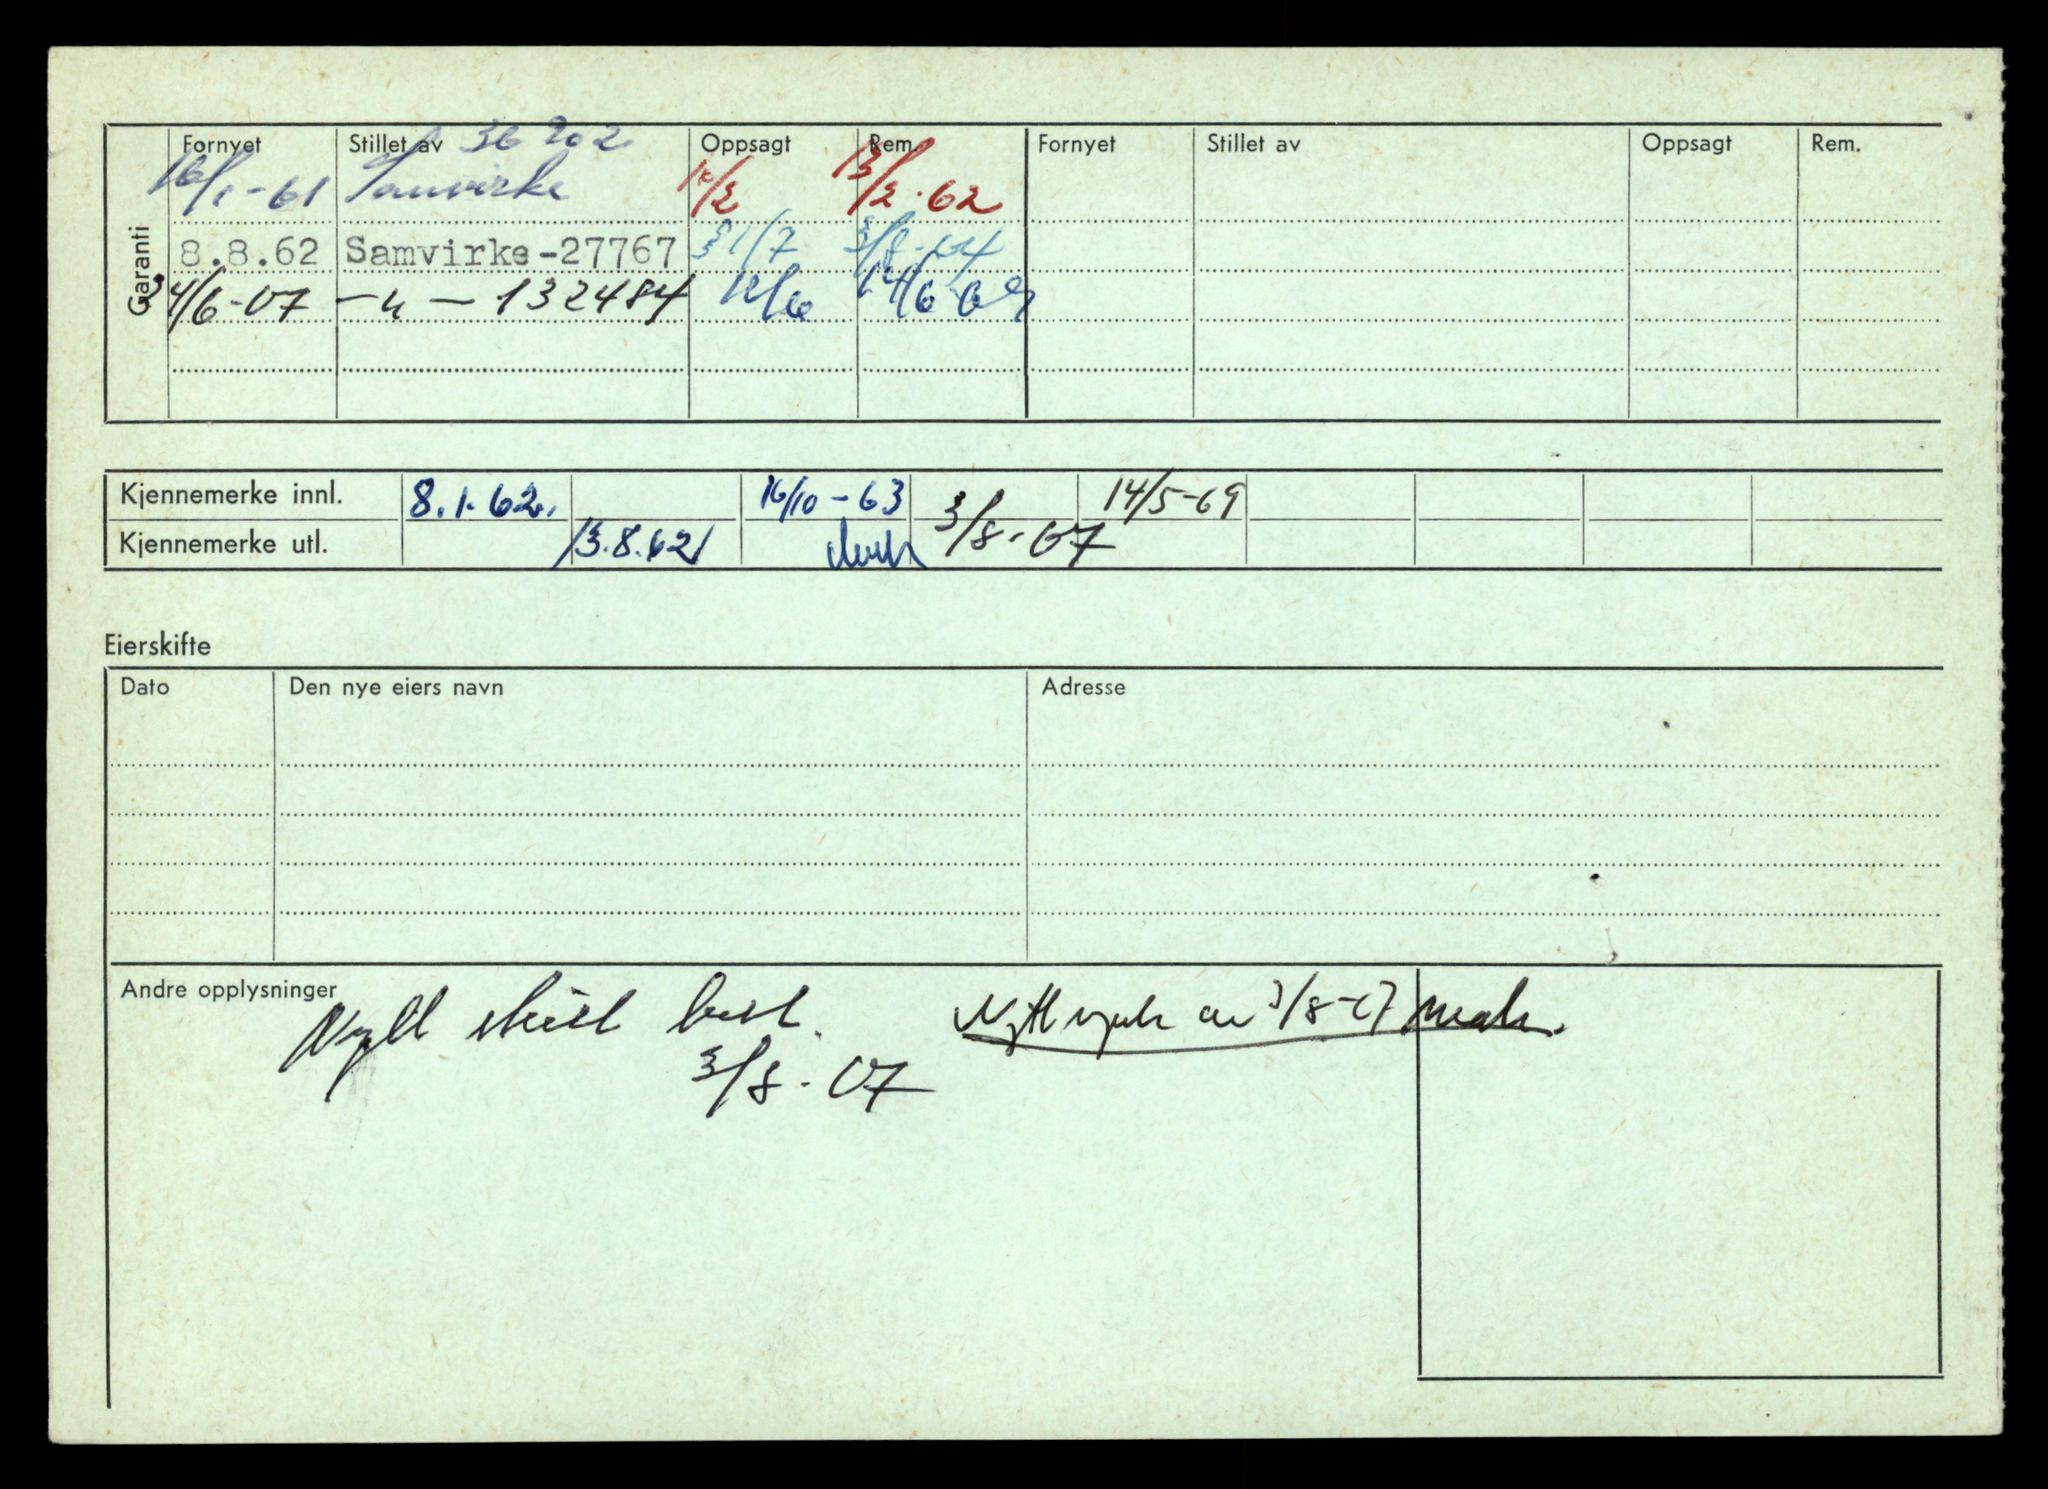 Garanti
Fornyet Stillet av 36202 Oppsagt Rem. Fornyet Stillet av Oppsagt Rem.
16/1-61 Samvirke 13/2-62
8.8.62 Samvirke-27767 31/7 3/8-64
24/6-67 -"- 132484 12/6 14/6 69
Kjennemerke innl. 8.1.62. 16/10-63 14/5-69
Kjennemerke utl. 13.8.62 3/8-67
Eierskifte
Dato Den nye eiers navn Adresse
Andre opplysninger
Nytt skilt best. Nytt 3/8-67
3/8-67